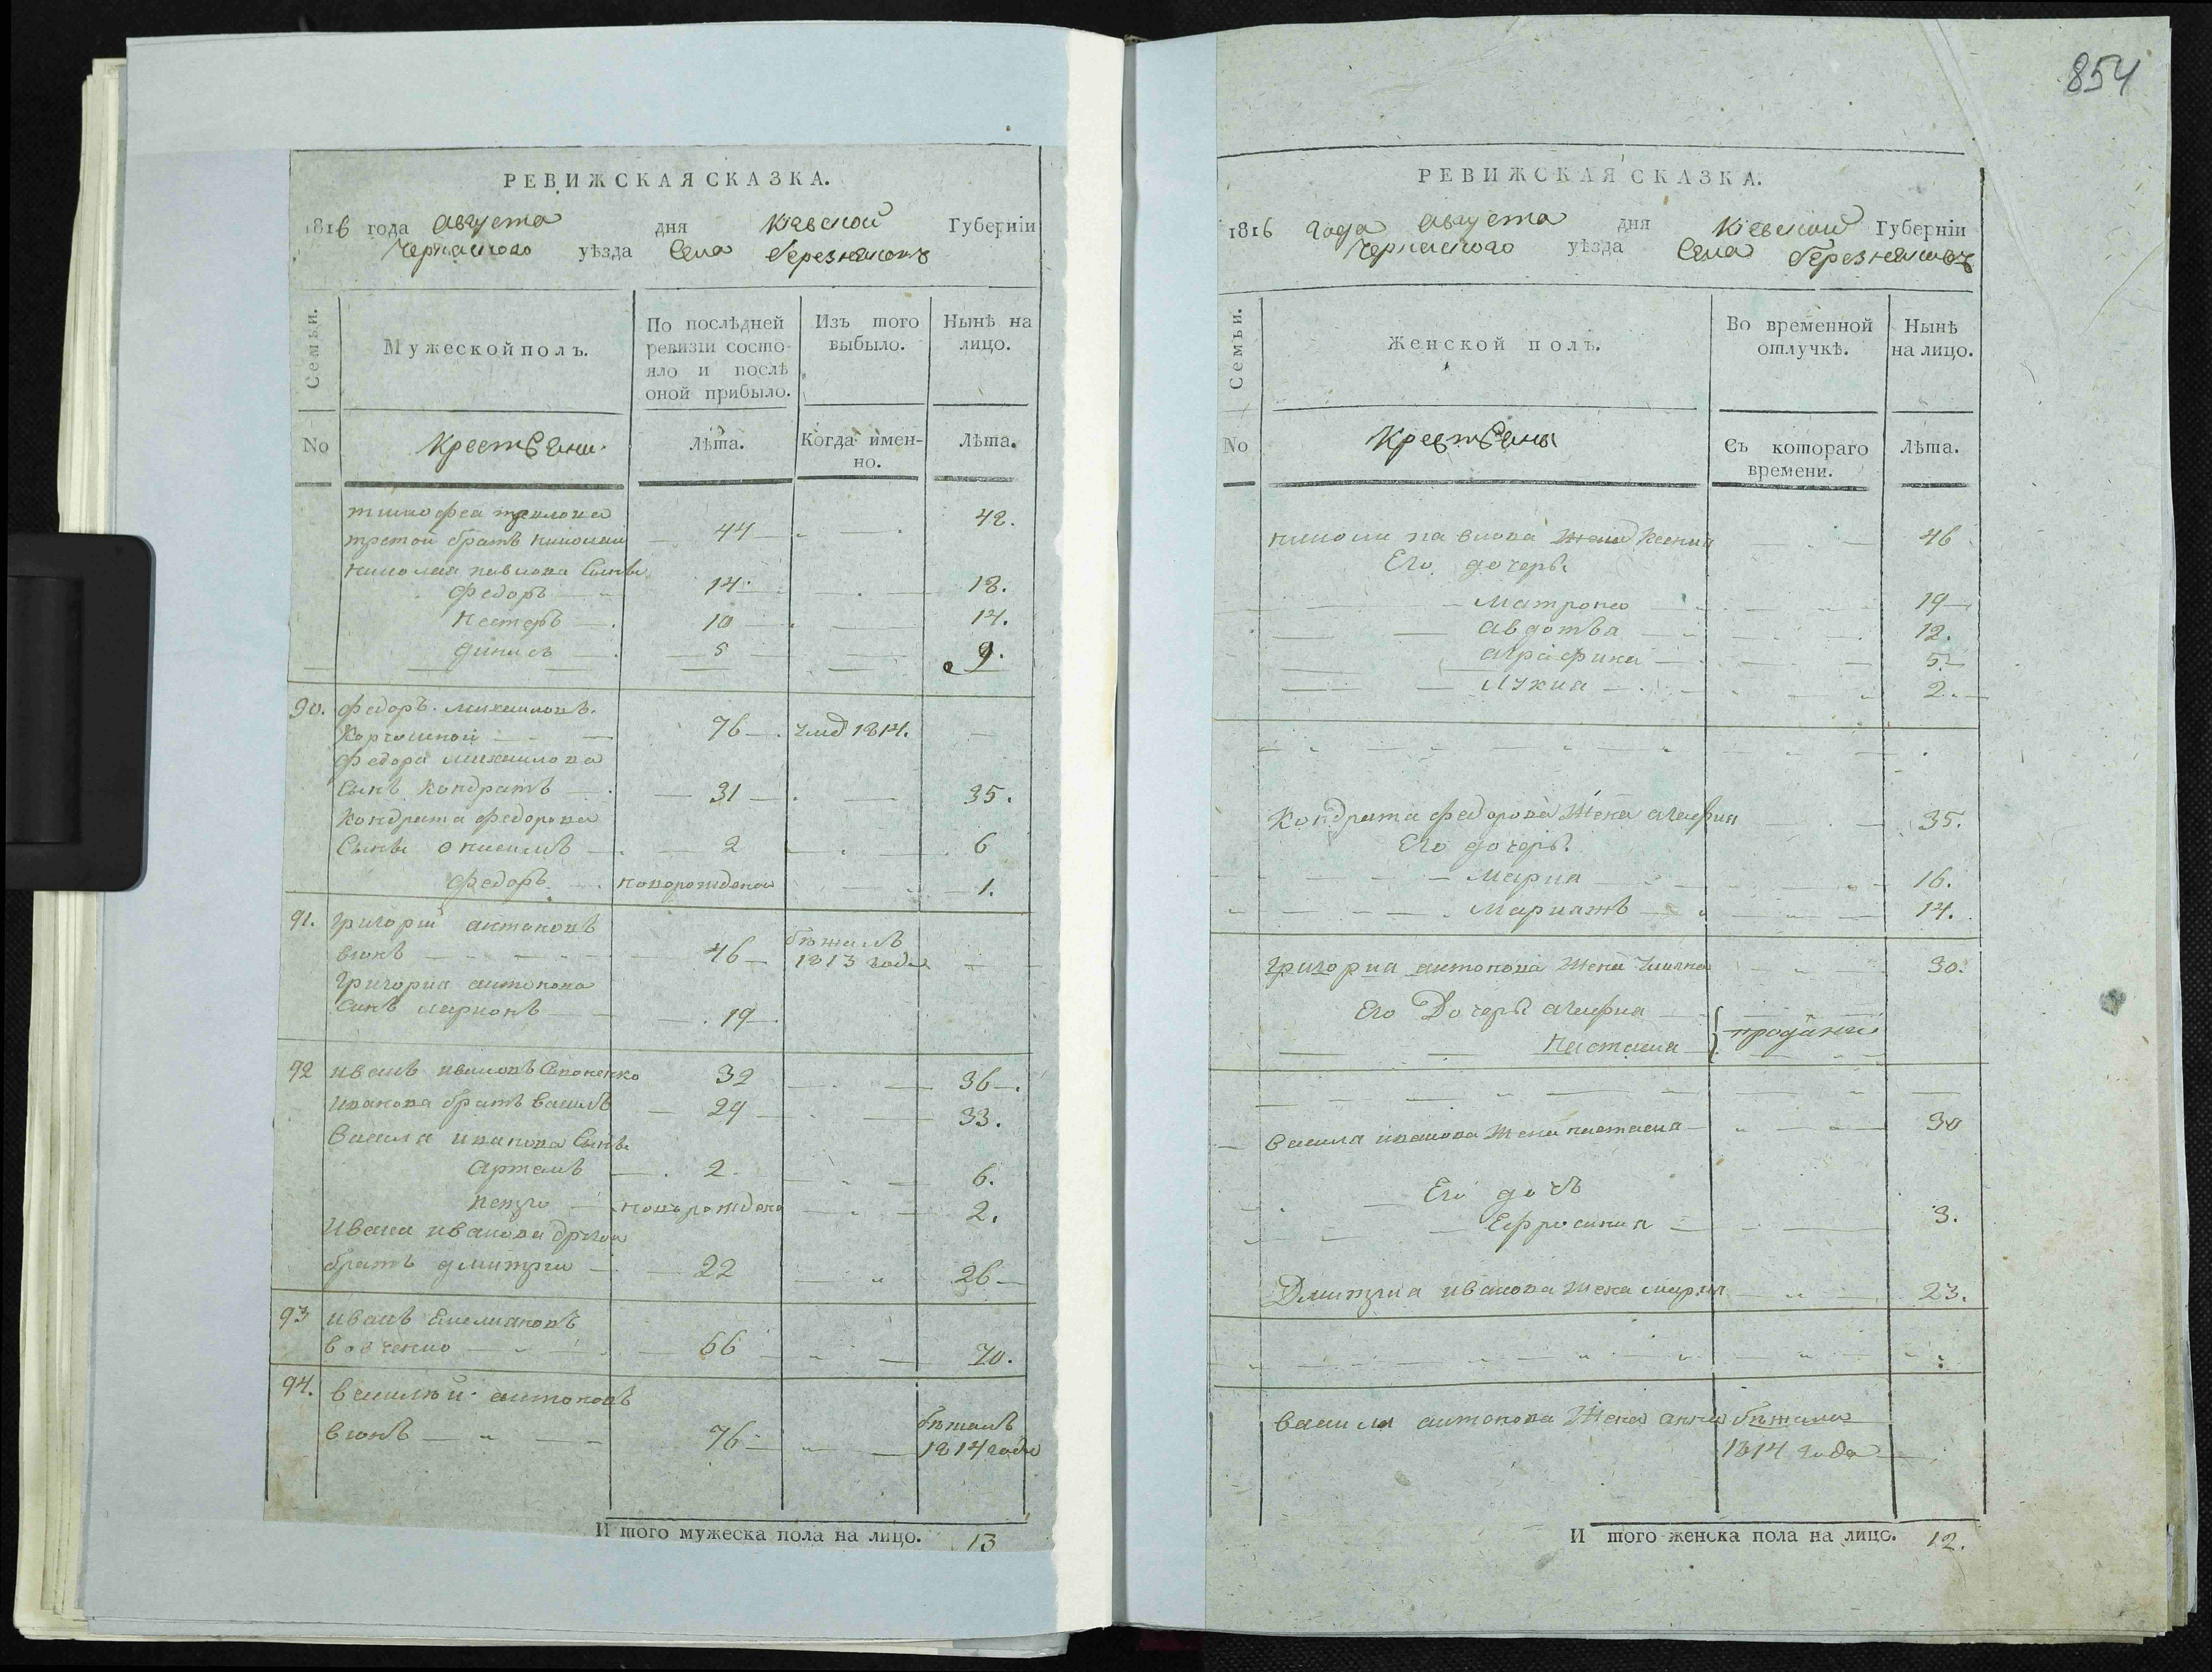 РЕВИЖСКАЯ СКАЗКА.
1816 года Августа дня Кіевской Губерніи
Черкаского уѣзда Села Березняковъ
Семьи.
Мужеской полъ.
По послѣдней ревизіи состояло и послѣ оной прибыло.
Изъ того выбыло.
Нынѣ на лицо.
No
Крестьяни
Лѣта.
Когда имен-но.
Лѣта.
тимофеа павлова
третой братъ николаи 44 48.
николая павлова Сынъ
Федоръ 14 18.
Нестеръ 10 14.
динисъ 5 9.
90. Федоръ Михаиловъ
76 умер 1814.
Федора михаилова
Сынъ Кондратъ 31 35.
Кондрата Федорова
Сынъ Онисимъ 2 6
Федоръ новорожденой 1.
91. Григорий антоновъ
вюнъ 46 бежалъ 1813 года
Григориа антонова
Синъ ларионъ 19
92 иванъ ивановъ 32 36
Иванова братъ василь 29 33.
Васила иванова Сынъ
Артемъ 2 6.
Петро новорождено 2.
Ивана иванова другой
братъ дмитрий 22 26
93 иванъ Емелиановъ
вовченко 66 70.
94. василѣй антоновъ
вюнъ 76 бежалъ 1814 года
И того мужеска пола на лицо. 13
854
РЕВИЖСКАЯ СКАЗКА.
1816 года Августа дня Кіевской Губерніи
Черкаского уѣзда Села Березняковъ
Семьи.
Женской полъ.
Во временной отлучкѣ.
Нынѣ на лицо.
No
Крестьяны
Съ котораго времени.
Лѣта.
николаи павлова Жена Ксения 46
Его дочеръ
Матрона 19
Авдотъа 12.
Аграфина 5
Лукиа 2.
Кондрата Федорова Жена агафиа 35.
Его дочеръ
Мариа 16.
Мариажъ 14.
Григориа антонова Жена 30.
Его Дочеръ агафиа
Настасиа проданы
Васила иванова Жена настасиа 30
Его дочъ
Ефросиниа 3.
Дмитриа иванова жена мариа 23.
васила антонова Жена анна бежала
1814 года
И того женска пола на лицо. 12.